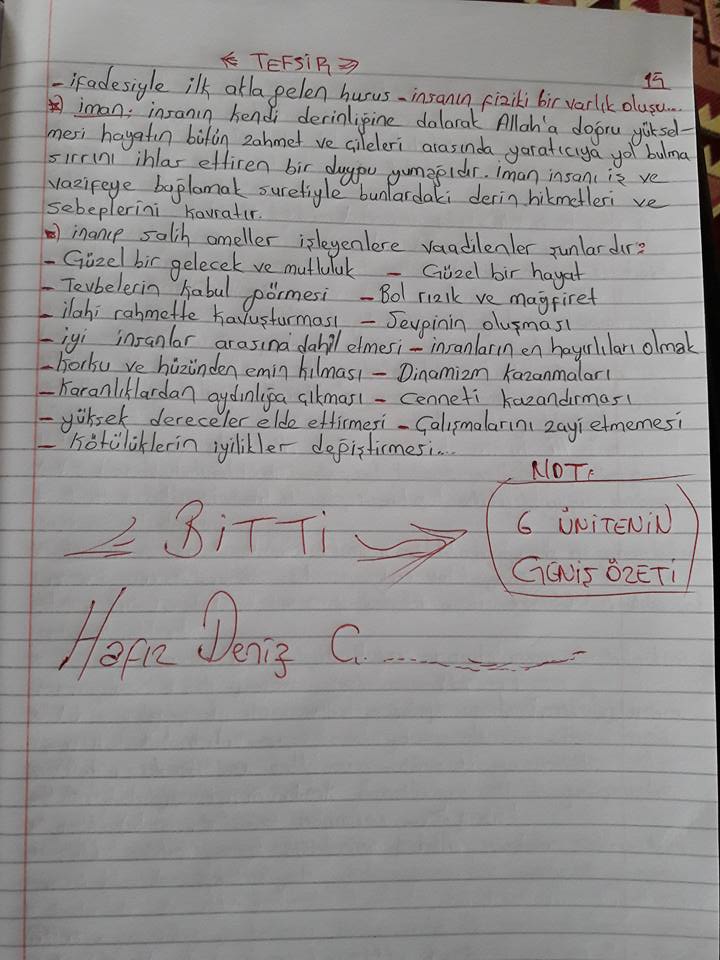 ← TEFSİR →
15
- ifadesiyle ilk akla gelen husus - insanın fiziki bir varlık oluşu...
*) iman; insanın kendi derinliğine dalarak Allah'a doğru yüksel-
mesi hayatın bütün zahmet ve çileleri arasında yaratıcıya yol bulma
sırrını ihlas ettiren bir duygu yumağıdır. iman insanı iş ve
vazifeye bağlamak suretiyle bunlardaki derin hikmetleri ve
sebeplerini kavratır.
*) inanıp salih ameller işleyenlere vaadilenler şunlardır:
- Güzel bir gelecek ve mutluluk - Güzel bir hayat
- Tevbelerin kabul görmesi - Bol rızık ve mağfiret
- ilahi rahmette kavuşturması - Sevginin oluşması
- iyi insanlar arasına dahil etmesi - insanların en hayırlıları olmak
- korku ve hüzünden emin kılması - Dinamizm kazanmaları
- karanlıklardan aydınlığa çıkması - cenneti kazandırması
- yüksek dereceler elde ettirmesi - Çalışmalarını zayi etmemesi
- kötülüklerin iyilikler değiştirmesi...
NOT:
6 ÜNİTENİN
GENİŞ ÖZETİ
BİTTİ
Hafız Deniz C.